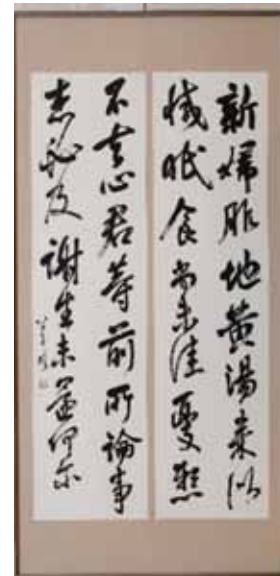 新婦服地黄湯来似
減眠食尚未佳憂懸
不去心君等前所論事
必及謝生未還何尓